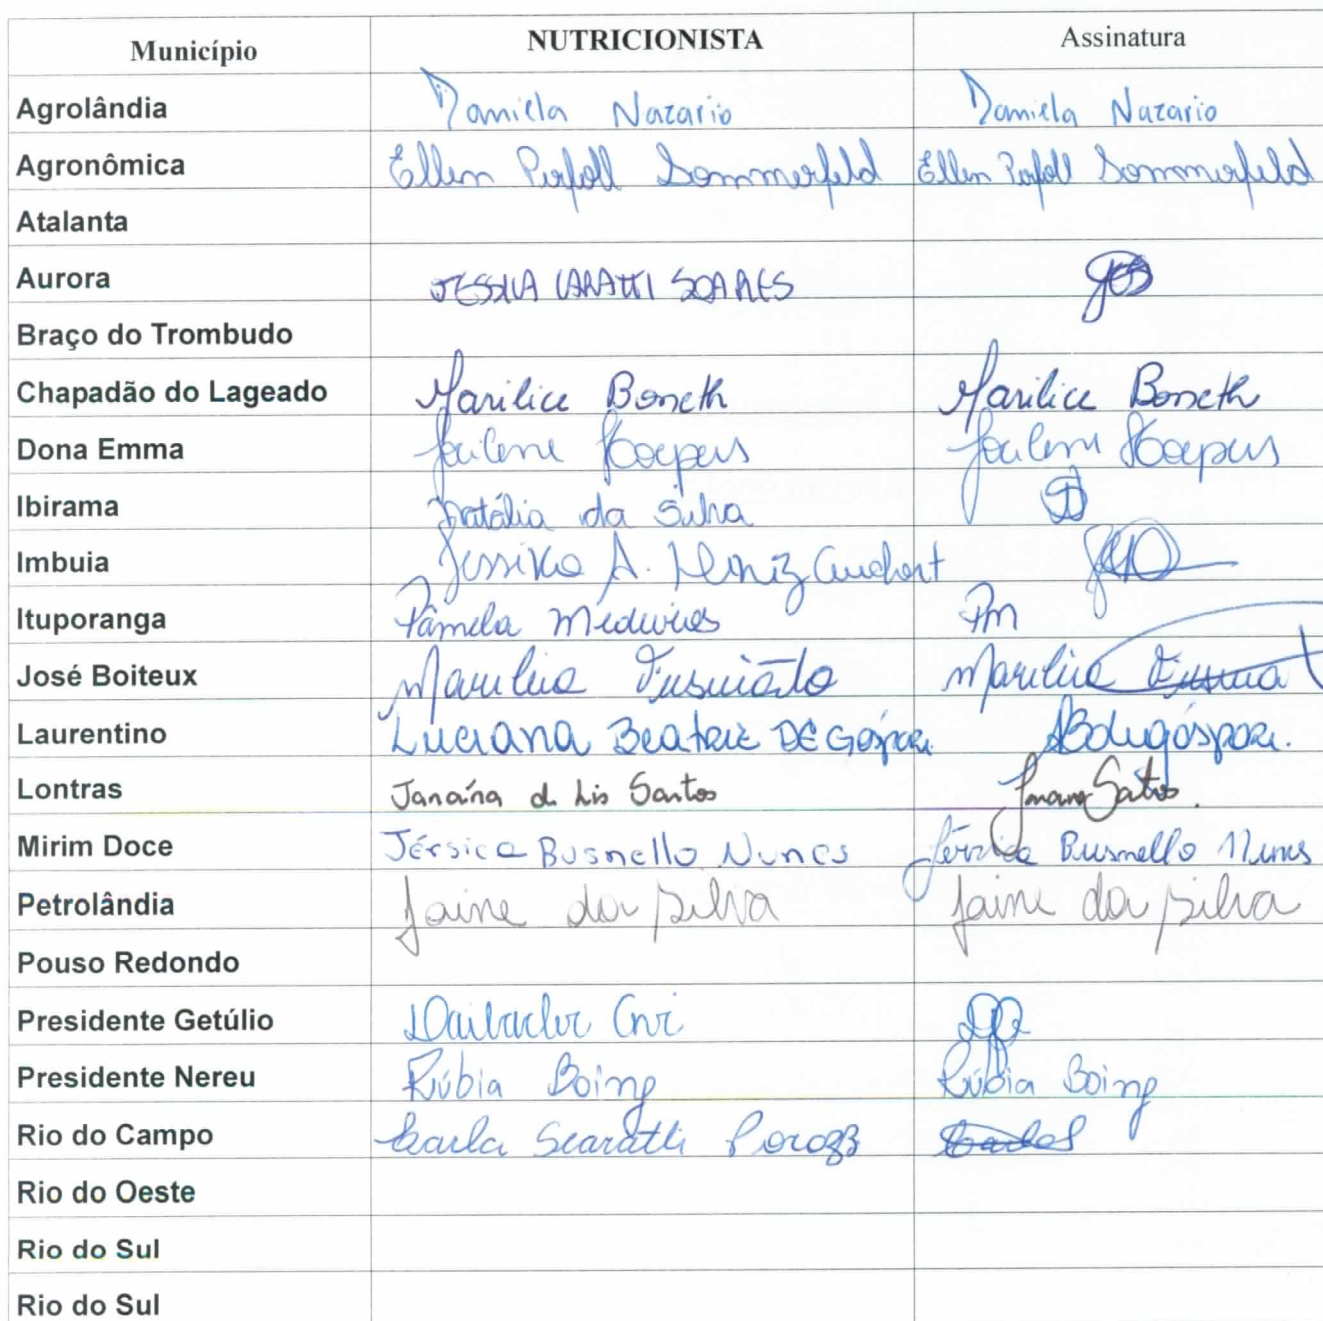 Município NUTRICIONISTA Assinatura
Agrolândia Daniela Nazario Daniela Nazario
Agronômica Ellen Sommerfeld Ellen Sommerfeld
Atalanta
Aurora JESSICA CARATTI SOARES
Braço do Trombudo
Chapadão do Lageado Marilice Boneth Marilice Boneth
Dona Emma Joilene Hoepers Joilene Hoepers
Ibirama Natália da Silva
Imbuia A.
Ituporanga Pâmela Medeiros Pm
José Boiteux Marilia Marilia
Laurentino Luciana Beatriz DE Gáspari
Lontras Janaína de Lis Santos Janaina Santos
Mirim Doce Jéssica Busnello Nunes Jéssica Busnello Nunes
Petrolândia Jaine da Silva Jaine da Silva
Pouso Redondo
Presidente Getúlio
Presidente Nereu Rúbia Boing Rúbia Boing
Rio do Campo Carla Scaratti
Rio do Oeste
Rio do Sul
Rio do Sul